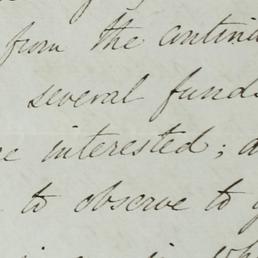 from the contin
several funds
interested; a
to observe to y